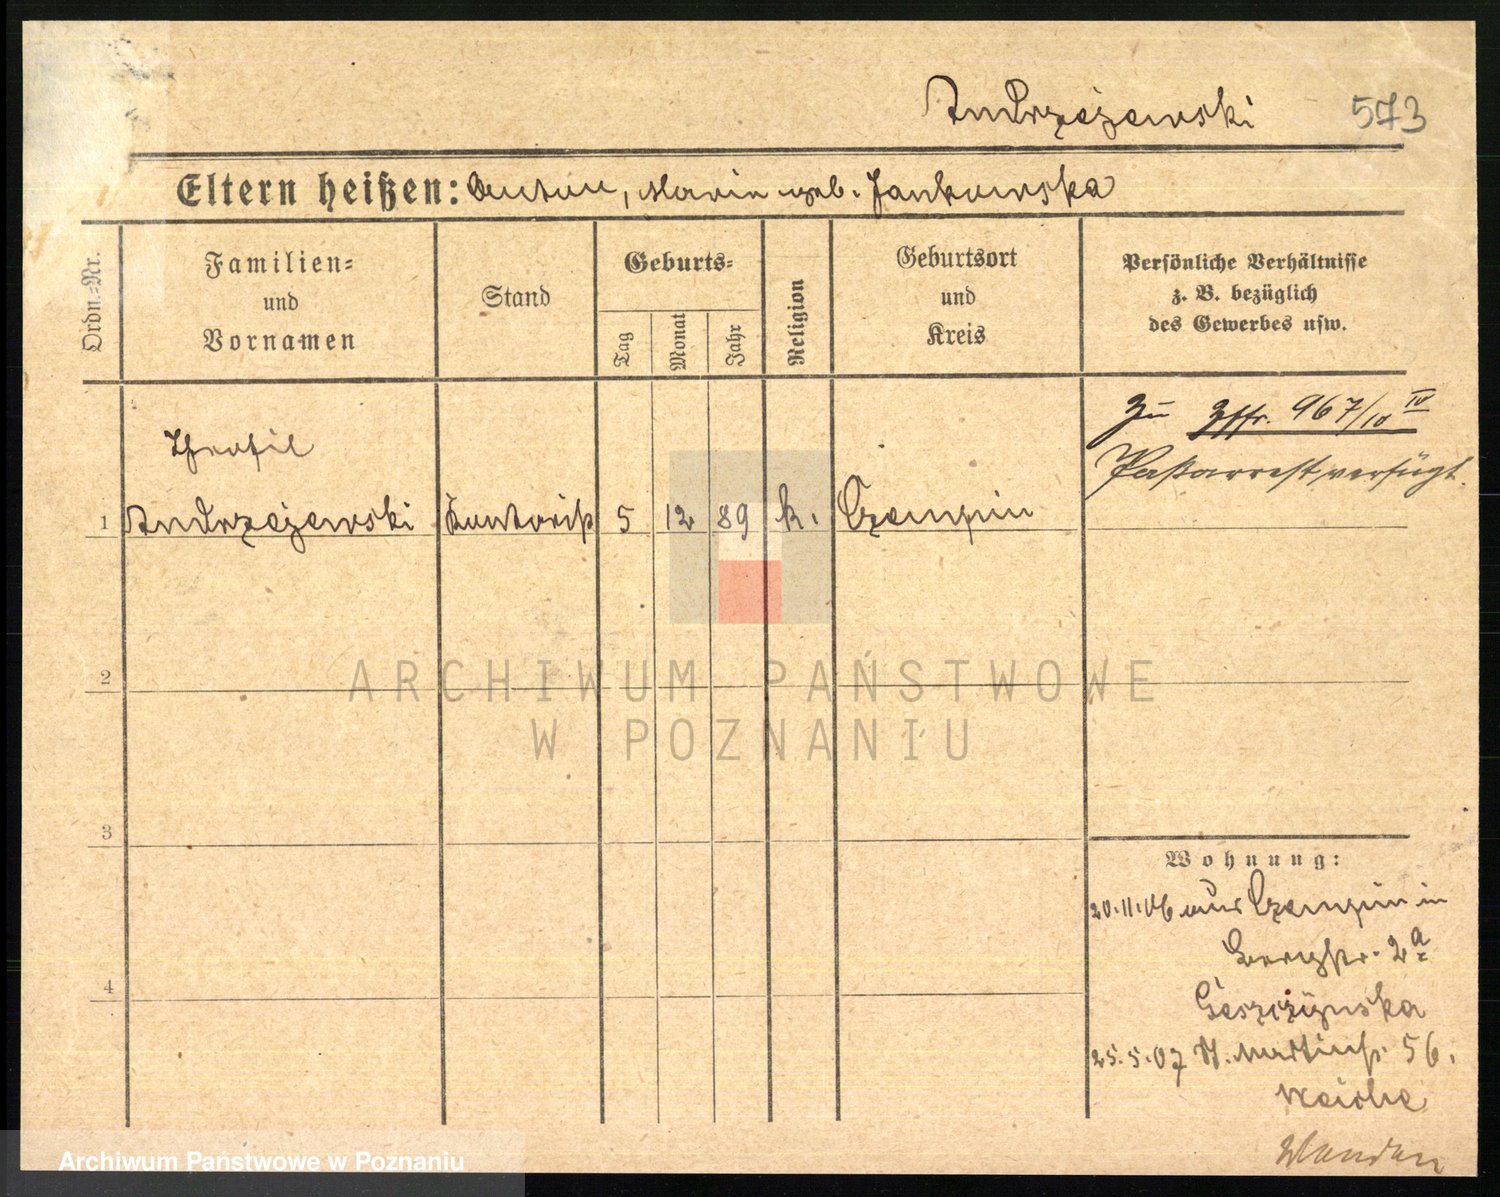 Andrzejewski 573
Eltern heißen: Anton, Marie geb. Jankowska
Ordn.-Nr.
Familien-
und
Vornamen
Stand
Geburts-
Tag
Monat
Jahr
Religion
Geburtsort
und
Kreis
Persönliche Verhältnisse
z. B. bezüglich
des Gewerbes usw.
Zu Zffr. 967/10 IV
Paßarrest verfügt.
Theofil
1 Andrzejewski Kontorist 5 12 89 k. Czempin
2
3
4
ARCHIWUM PAŃSTWOWE
W POZNANIU
Wohnung:
20.11.06 aus Czempin in
Bergstr. 2a
25.5.07 St. Martinstr. 56.
Archiwum Państwowe w Poznaniu